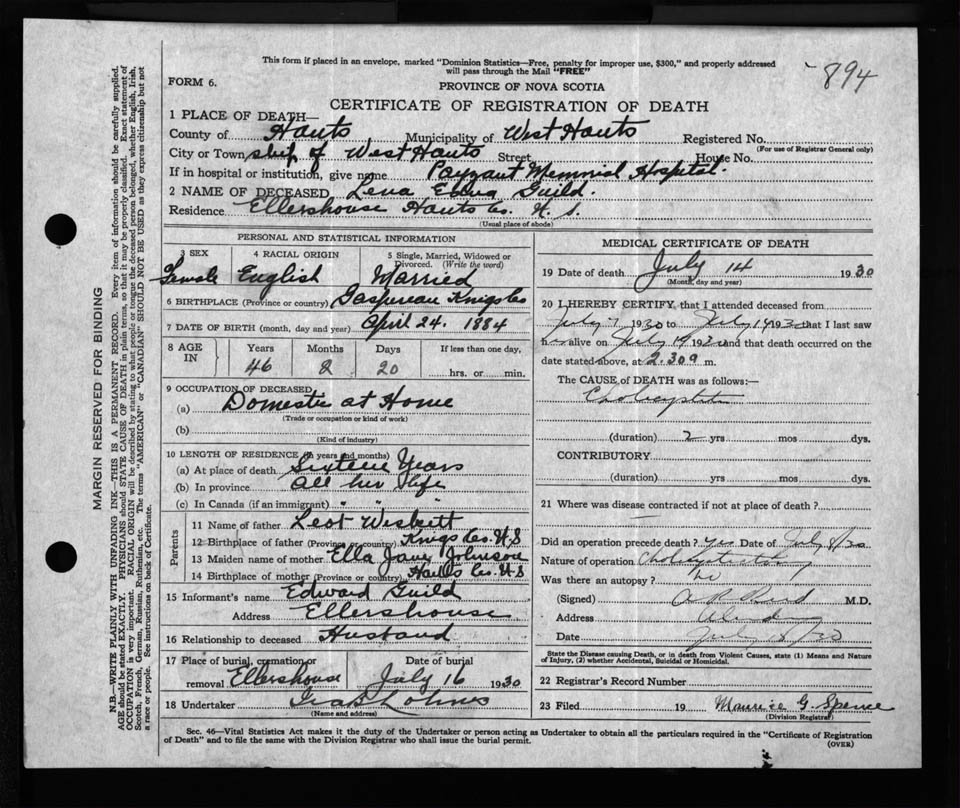 This form if placed in an envelope, marked "Dominion Statistics—Free, penalty for improper use, $300," and properly addressed
will pass through the Mail "FREE"
894
FORM 6.
PROVINCE OF NOVA SCOTIA
CERTIFICATE OF REGISTRATION OF DEATH
1 PLACE OF DEATH—
County of Hants Municipality of West Hants Registered No.
(For use of Registrar General only)
City or Town ship of West Hants Street House No.
If in hospital or institution, give name Payzant Memorial Hospital.
2 NAME OF DECEASED Lena Guild.
Residence Ellershouse Hants Co. N. S.
(Usual place of abode)
PERSONAL AND STATISTICAL INFORMATION
3 SEX 4 RACIAL ORIGIN 5 Single, Married, Widowed or Divorced. (Write the word)
Female English Married
6 BIRTHPLACE (Province or country) Gaspereau Kings Co
7 DATE OF BIRTH (month, day and year) April 24. 1884
8 AGE IN Years Months Days If less than one day,
46 8 20 hrs. or min.
9 OCCUPATION OF DECEASED
(a) Domestic at Home
(Trade or occupation or kind of work)
(b)
(Kind of industry)
10 LENGTH OF RESIDENCE (in years and months)
(a) At place of death Sixteen Years
(b) In province all her life
(c) In Canada (if an immigrant) " " "
Parents
11 Name of father
12 Birthplace of father (Province or country) Kings Co. N.S
13 Maiden name of mother Ella Jane Johnson
14 Birthplace of mother (Province or country) Hants Co. N.S
15 Informant's name Edward Guild
Address Ellershouse
16 Relationship to deceased Husband
17 Place of burial, cremation or removal Ellershouse Date of burial July 16 1930
18 Undertaker
(Name and address)
MEDICAL CERTIFICATE OF DEATH
19 Date of death July 14 1930
(Month, day and year)
20 I HEREBY CERTIFY, that I attended deceased from
July 7 1930 to July 14 1930 that I last saw
h alive on July 14 1930 and that death occurred on the
date stated above, at 2.30 m.
The CAUSE OF DEATH was as follows:—
(duration) 2 yrs. mos. dys.
CONTRIBUTORY
(duration) yrs. mos. dys.
21 Where was disease contracted if not at place of death?
Did an operation precede death? yes Date of July 8/30
Nature of operation
Was there an autopsy? No
(Signed) M.D.
Address
Date July /30
State the Disease causing Death, or in death from Violent Causes, state (1) Means and Nature
of Injury, (2) whether Accidental, Suicidal or Homicidal.
22 Registrar's Record Number
23 Filed 19 Maurice G. Spence
(Division Registrar)
Sec. 46—Vital Statistics Act makes it the duty of the Undertaker or person acting as Undertaker to obtain all the particulars required in the "Certificate of Registration
of Death" and to file the same with the Division Registrar who shall issue the burial permit.
(OVER)
MARGIN RESERVED FOR BINDING
N.B.—WRITE PLAINLY WITH UNFADING INK—THIS IS A PERMANENT RECORD. Every item of information should be carefully supplied.
AGE should be stated EXACTLY. PHYSICIANS should STATE CAUSE OF DEATH in plain terms, so that it may be properly classified. Exact statement of
OCCUPATION is very important. RACIAL ORIGIN will be described by stating to what people or tongue the deceased person belonged, whether English, Irish,
Scotch, French, German, Russian, Ruthenian, etc. The terms "AMERICAN" or "CANADIAN" SHOULD NOT BE USED as they express citizenship but not
a race or people. See instructions on back of Certificate.